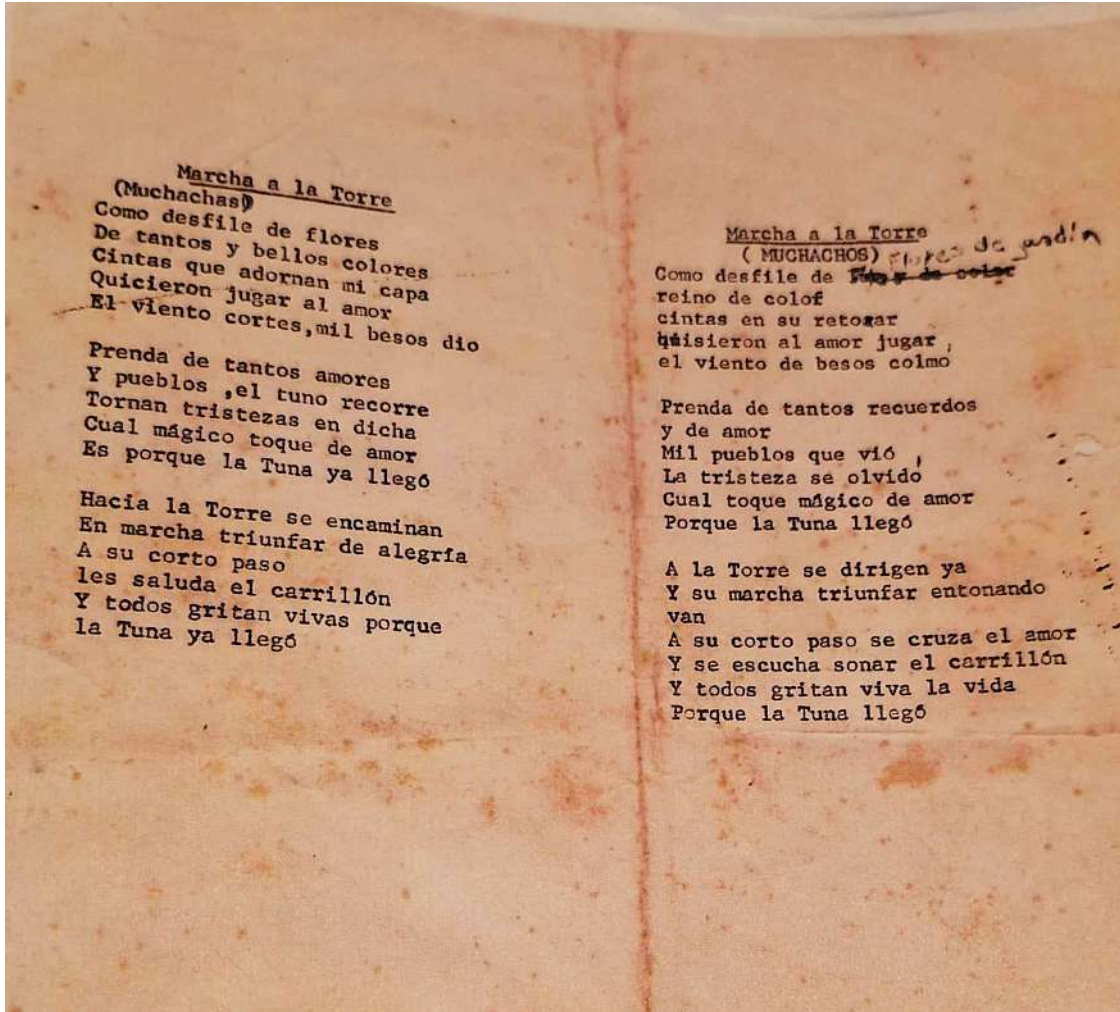 Marcha a la Torre
(Muchachas)
Como desfile de flores
De tantos y bellos colores
Cintas que adornan mi capa
Quicieron jugar al amor
El viento cortes,mil besos dio
Prenda de tantos amores
Y pueblos ,el tuno recorre
Tornan tristezas en dicha
Cual mágico toque de amor
Es porque la Tuna ya llegó
Hacia la Torre se encaminan
En marcha triunfar de alegría
A su corto paso
les saluda el carrillón
Y todos gritan vivas porque
la Tuna ya llegó
Marcha a la Torre
( MUCHACHOS) flores de jardín
Como desfile de
reino de colof
cintas en su retozar
quisieron al amor jugar ,
el viento de besos colmo
Prenda de tantos recuerdos
y de amor
Mil pueblos que vió ,
La tristeza se olvido
Cual toque mágico de amor
Porque la Tuna llegó
A la Torre se dirigen ya
Y su marcha triunfar entonando
van
A su corto paso se cruza el amor
Y se escucha sonar el carrillón
Y todos gritan viva la vida
Porque la Tuna llegó